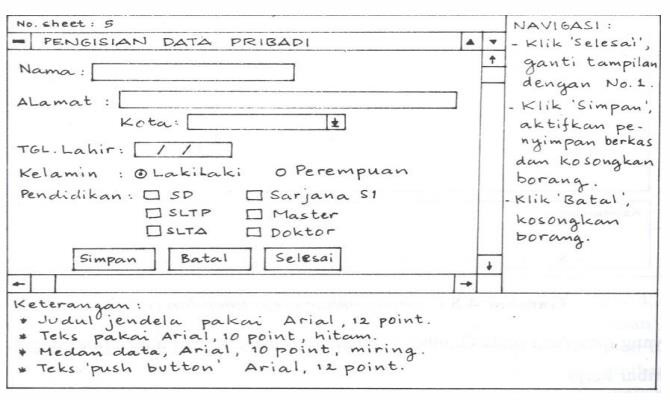 No. sheet: 5
PENGISIAN DATA PRIBADI
Nama:
ALamat :
Kota:
TGL. Lahir: / /
Kelamin : Lakilaki Perempuan
Pendidikan: SD Sarjana S1
SLTP Master
SLTA Doktor
Simpan Batal Selesai
NAVIGASI :
- Klik 'Selesai',
ganti tampilan
dengan No.1.
- Klik 'Simpan',
aktifkan pe-
nyimpan berkas
dan kosongkan
borang.
- Klik 'Batal',
kosongkan
borang.
Keterangan:
* Judul jendela pakai Arial, 12 point.
* Teks pakai Arial, 10 point, hitam.
* Medan data, Arial, 10 point, miring.
* Teks 'push button' Arial, 12 point.